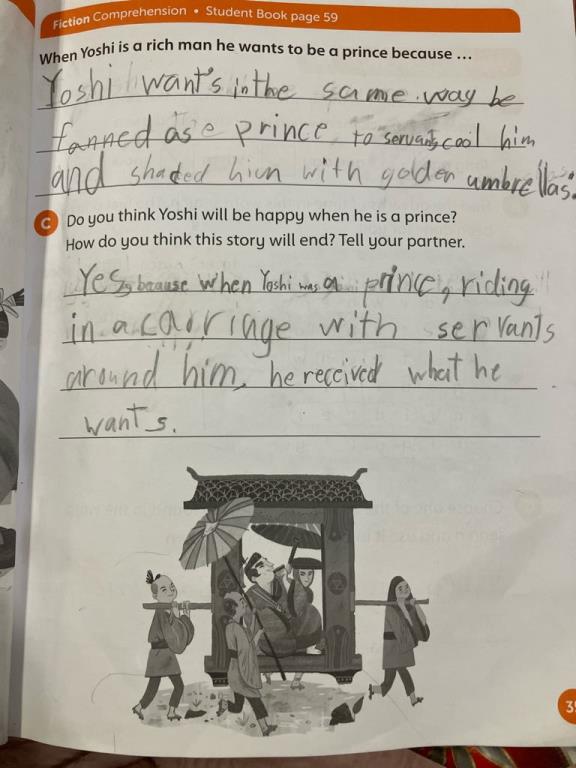 Fiction Comprehension • Student Book page 59
When Yoshi is a rich man he wants to be a prince because ...
Yoshi want's in the same way be
fanned as e prince to servants cool him
and shaded him with golden umbrellas.
C Do you think Yoshi will be happy when he is a prince?
How do you think this story will end? Tell your partner.
Yes, because when Yoshi was a prince, riding
in a carringe with servants
around him, he received what he
wants.